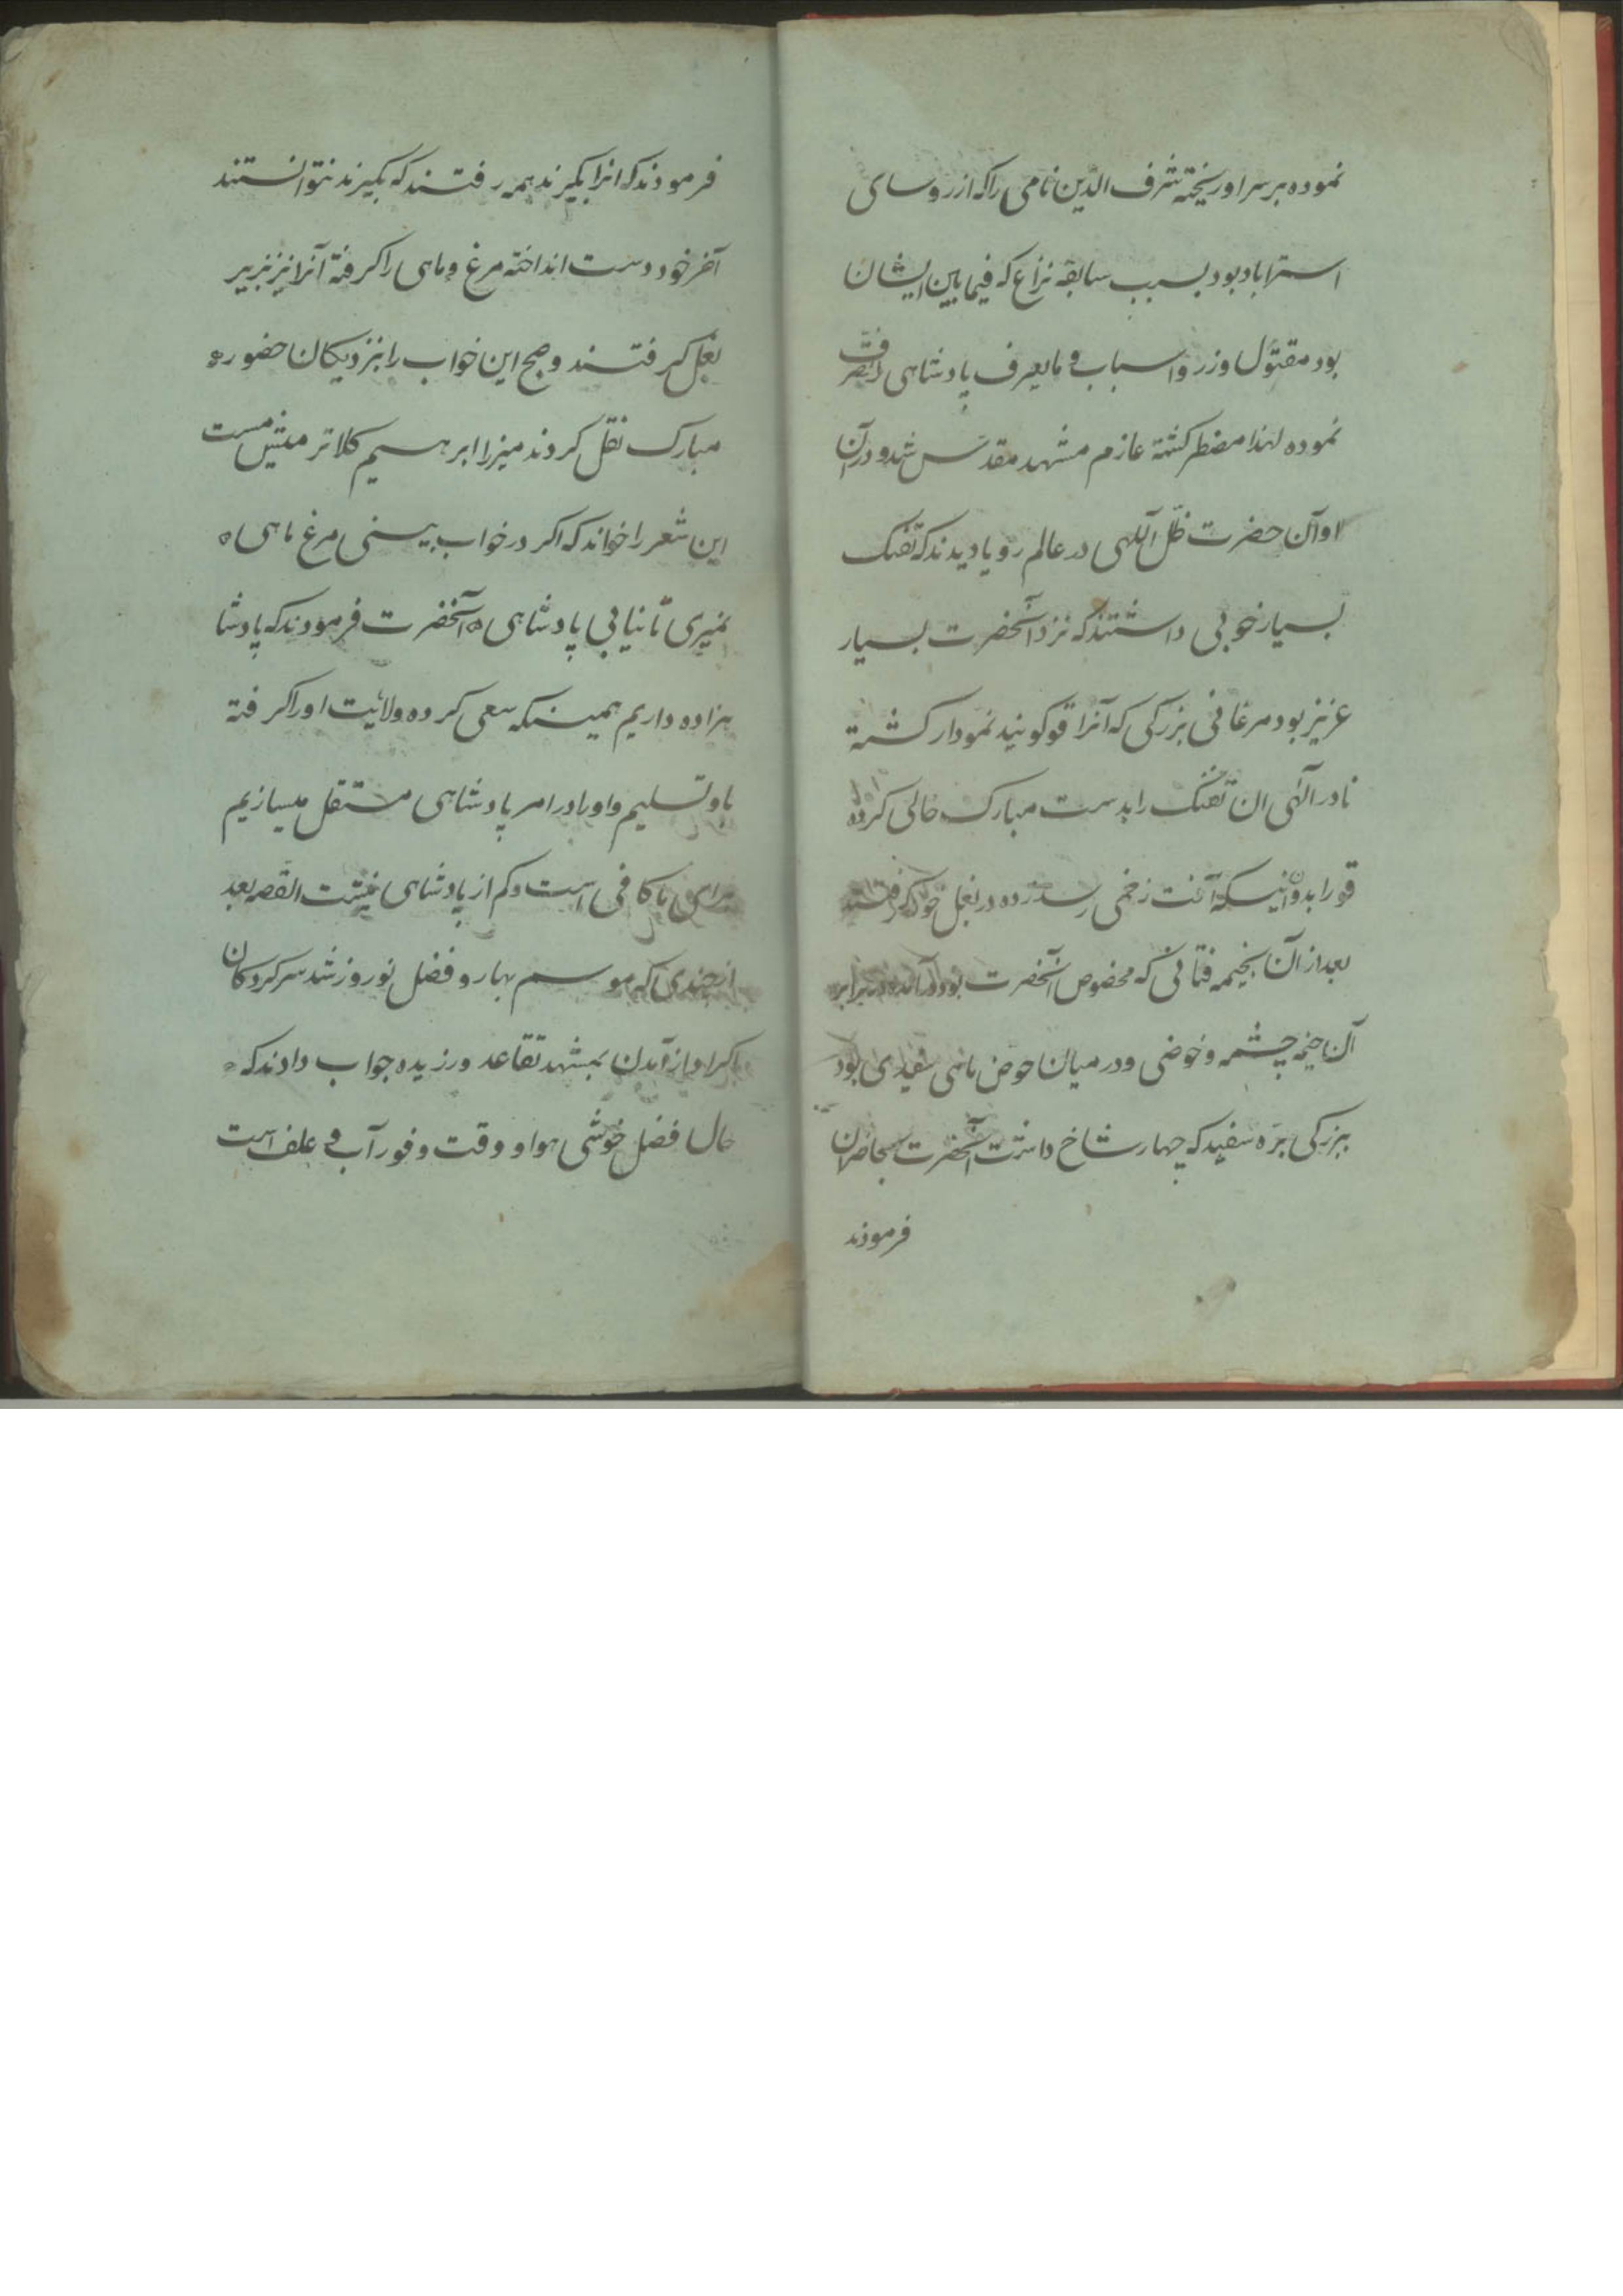 نموده برسر او ریخته شرف الدین نامی را که از روسای
استراباد بود بسبب سابقه نزاع که فیما بین ایشان
بود مقتول و زر و اسباب و مایعرف پادشاهی را تصرف
نموده لهذا مضطر کشته عازم مشهد مقدس شد و در آن
اوآن حضرت ظل آللهی در عالم رویا دیدند که تفنک
بسیار خوبی داشتند که نزد آنحضرت بسیار
عزیز بود مرغابی بزرکی که آنرا قو کویند نمودار کشته
نادر آلهی ان تفنک را بدست مبارک خالی کرده
قو را بدون اینکه آفت زخمی رسد زده در بغل خود کرفتند
بعد از آن بخیمه که مخصوص آنحضرت بود در آمده در برابر
آن خیمه چشمه و حوضی و در میان حوض ماهی سفیدی بود
ببزرکی بره سفید که چهار شاخ داشت آنحضرت بحاضران
فرمودند
فرمودند که انرا بکیرند همه رفتند که بکیرند نتوانستند
آخر خود دست انداخته مرغ و ماهی را کرفته آنرا نیز بزیر
بغل کرفتند و صبح این خواب را بنزدیکان حضور
مبارک نقل کردند میرزا ابرهیم کلانتر مست
این شعر را خواند که اکر در خواب بینی مرغ ماهی ه
نمیری تا نیابی پادشاهی ه آنحضرت فرمودند که پادشا
هزاده داریم همینکه سعی کرده ولایت او را کرفته
باو تسلیم و او را در امر پادشاهی مستقل میسازیم
برای ما کافی است و کم از پادشاهی نیست القصه بعد
از چندی که موسم بهار و فصل نوروز شد سرکردکان
اکراد از آمدن بمشهد تقاعد ورزیده جواب دادند که
حال فصل خوشی هوا و وقت وفور آب و علف است